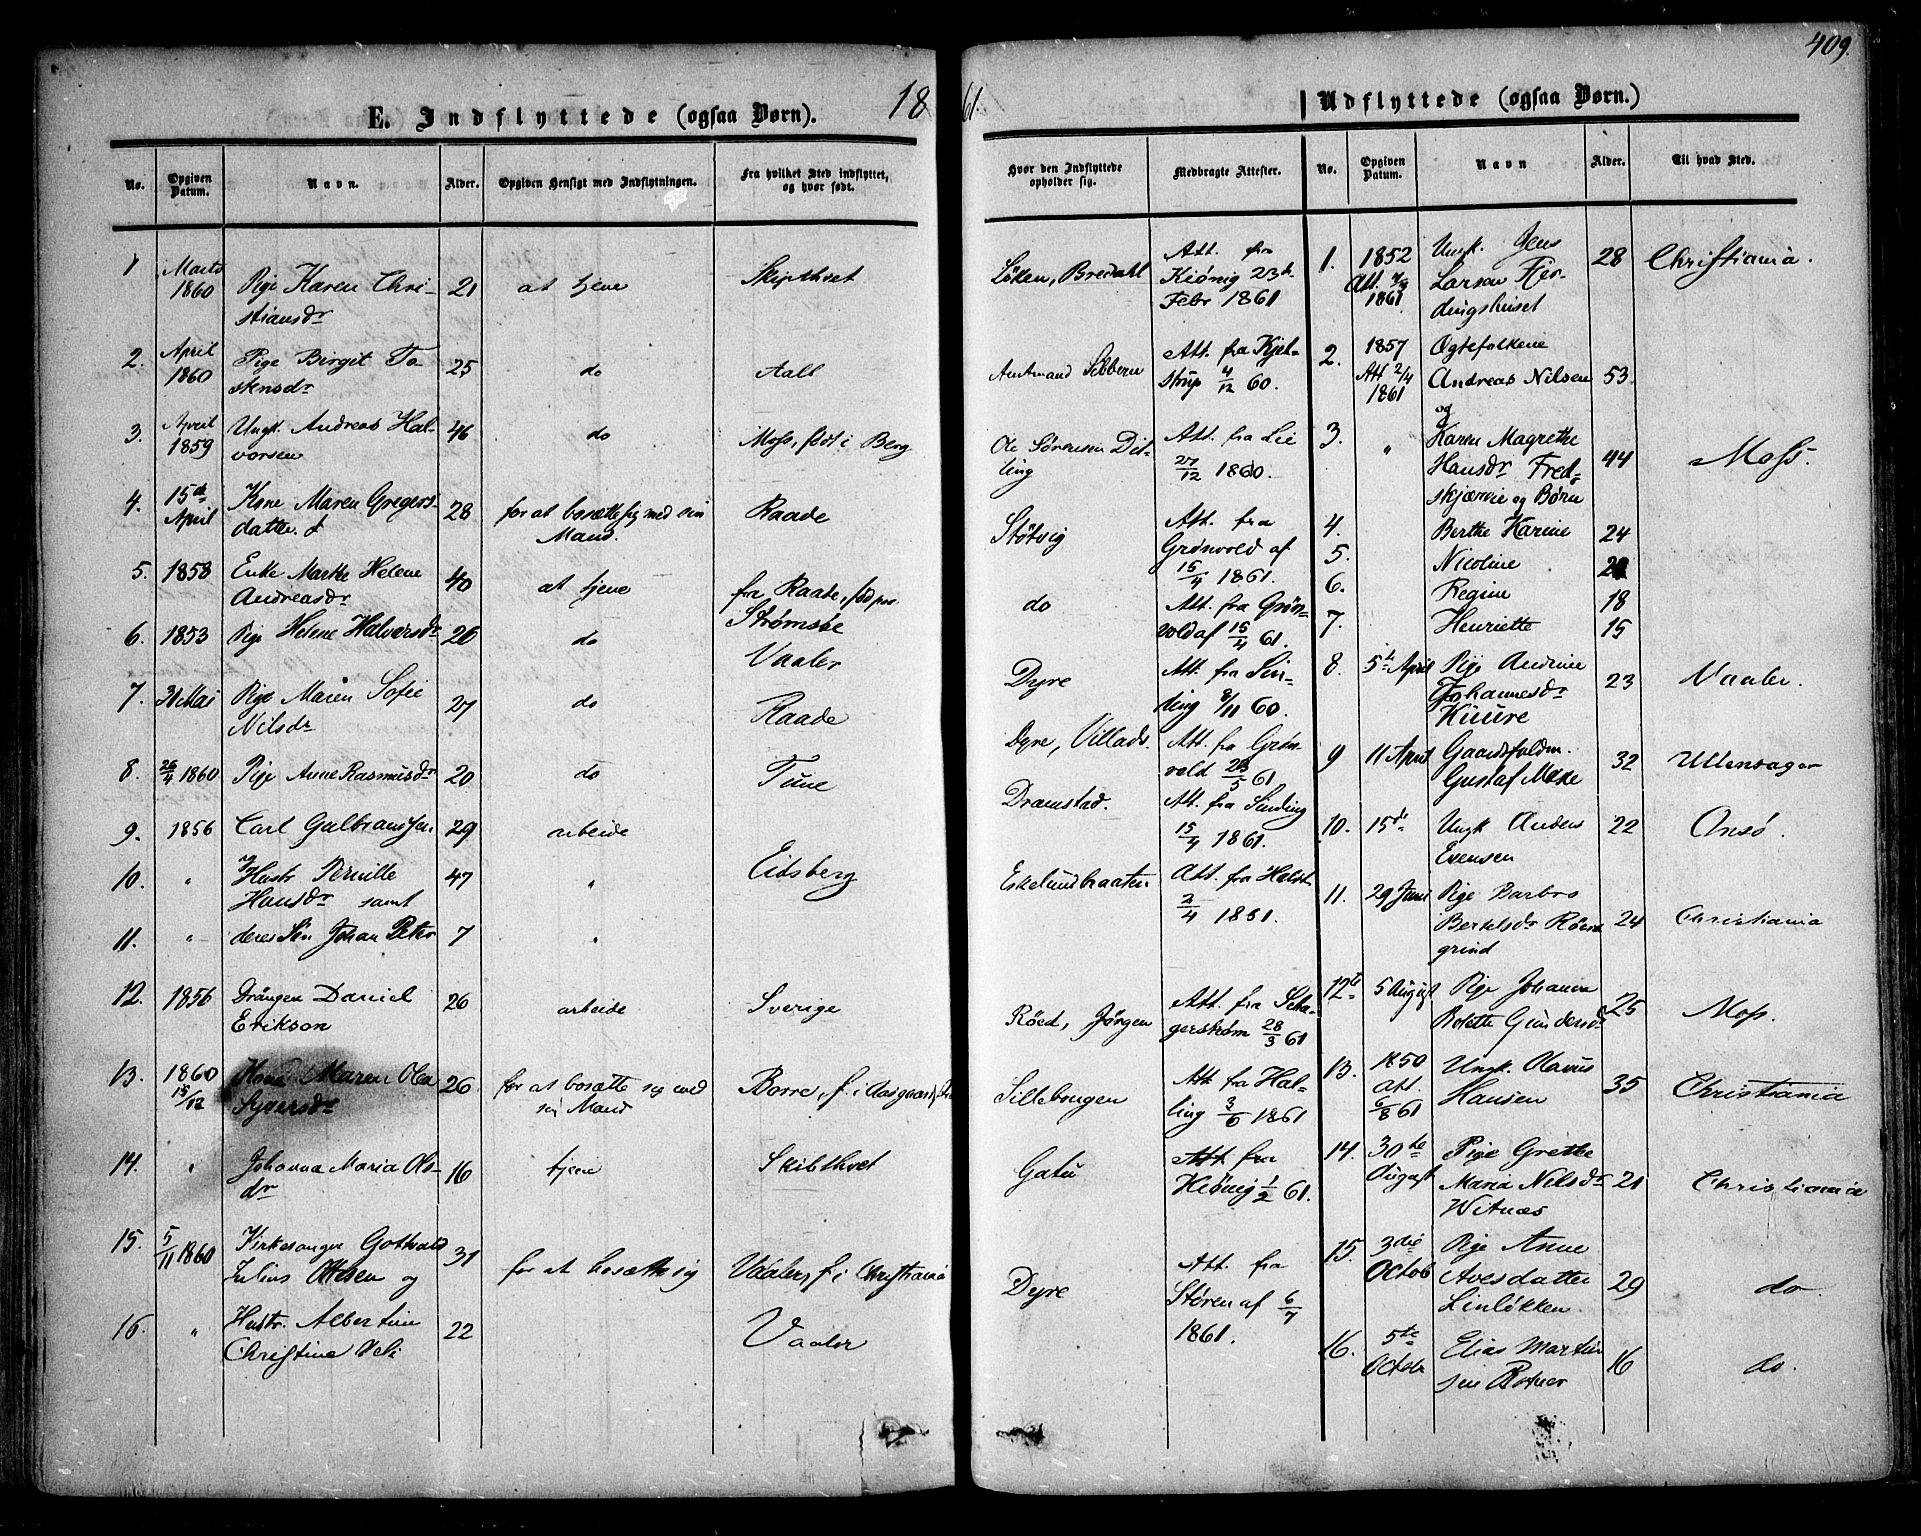 409.
18 61.
E. Indflyttede (ogsaa Børn).
Udflyttede (ogsaa Børn.)
No. Opgiven Datum. Navn. Alder. Opgiven Hensigt med Indflytningen. Fra hvilket Sted indflyttet, og hvor født.
Hvor den Indflyttede opholder sig. Medbragte Attester. No. Opgiven Datum. Navn Alder. Til hvad Sted.
1 Marts 1860 Pige Karen Chri-
stiansdr 21 at tjene Skipthvet
Löken, Bredahl Att. fra
Kiönig 23de
Febr 1861
2. April 1860 Pige Birgit To-
stensdr 25 do Aall
Amtmand Sibbern Att. fra Kjel-
strup 4/12 60.
3. April 1859 Ungk. Andreas Hal-
vorsen 46 do Moss, født i Berg
Ole Sörensen Dil-
ling Att. fra Lie
27/12 1860.
4. 15de April Kone Maren Gregers-
datter 28 for at bosætte sig med sin
Mand. Raade
Støtvig Att. fra
Grønvold af
15/4 1861.
5. 1858 Enke Marthe Helene
Andreasdr 40 at tjene fra Raade, fød paa
Strømsöe
do Att. fra Grøn-
vold af 15/4 61.
6. 1853 Pige Helene Halversdr 26 do Vaaler
Dyre Att. fra Sin-
ding 8/11 60.
7. 31 Mai Pige Maren Sofie
Nilsdr 27 do Raade
Dyre, Villads. Att. fra Grøn-
vold 23/5 61
8. 26/4 1860 Pige Anne Rasmusdr 20 do Tune
Dramstad. Att. fra Sinding
15/4 1861.
9. 1856 Carl Gulbranssen 29 arbeide
10. " Hustr Pernille
Hansdr samt 47 " Eidsberg
Eskelundbraaten Att. fra Holst
2/4 1861.
11. " deres Sön Johan Peter 7 "
12. 1856 Drängen Daniel
Erikson 26 arbeide Sverige
Röed, Jörgen Att. fra Seha-
gerström 28/3 61
13. 1860 15/12 Kone Maren Olea
Syversdr 26 for at bosætte sig med
sin Mand Borre, f. i Aasgaard
Sillebougen Att fra Hal-
ling 3/6 1861
14. " Johanna Maria Ols-
dr 16 tjene Skibthvet
Gatu Att fra
Kiönig 1/2 61.
15. 5/11 1860 Kirkesanger Gottvald
Julius Ottesen og 31 for at bosætte sig Vaaler, f. i Christiania
Dyre Att. fra
Støren af 6/7
1861.
16. " Hustr. Albertine
Christine 22 Vaaler
1. 1852
Att. 7/3
1861 Ungk. Jens
Larsen Fjer-
dingshuset 28 Christiania.
2. 1857
Att 2/4
1861 Ogtefolkene
Andreas Nilsen 53
og
3. " Karen Magrethe
Hansdr Fred-
skjærvie og Børn 44 Moss.
4. Berthe Karine 24
5. Nicoline
6. Regine 18
7. Henriette 15
8. 5te April Pige Andrine
Johannesdr
Kuure 23 Vaaler.
9 11 April Gaardsfuldm.
Gustaf Moxe 32 Ullensager
10. 15de Ungk Anders
Evensen 22 Onsö.
11. 29 Juni Pige Barbro
Bertelsdr Röers-
grind 24 Christiania
12te 5 August Pige Johanne
Bolette Gundersdr 25 Moss.
13. 1850
Att.
6/8 61 Ungk. Olavus
Hansen 35 Christiania
14. 30te
August Pige Grethe
Maria Nilsdr
Witnæs 21 Christiania
15. 3die
Octob Pige Anne
Avesdatter
Linlökken 29 do
16. 5te
Octobr Elias Martin
sen Botner 16 do.